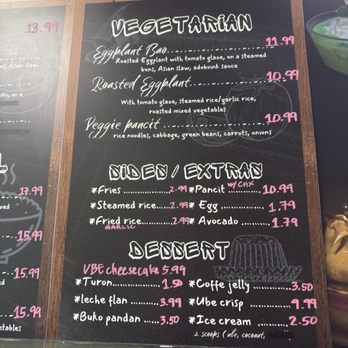 13.99
Asian slaw,
VEGETARIAN
Eggplant Bao 11.99
Roasted Eggplant with tomato glaze, on a steamed
buns, Asian slaw, adobuink sauce
Roasted Eggplant 10.99
With tomato glaze, steamed rice/garlic rice,
roasted mixed vegetables
Veggie pancit 10.99
rice noodles, cabbage, green beans, carrots, onions
17.99
15.99
15.99
SIDES / EXTRAS
*Fries 2.99
*Pancit w/ CHX 10.99
*Steamed rice 2.99
*Egg 1.79
*Fried rice 2.99
GARLIC
*Avocado 1.79
DESSERT
UBE cheesecake 5.99
*Turon 1.50
*Coffe jelly 3.50
*leche flan 3.99
*Ube crisp 9.99
*Buko pandan 3.50
*Ice cream 2.50